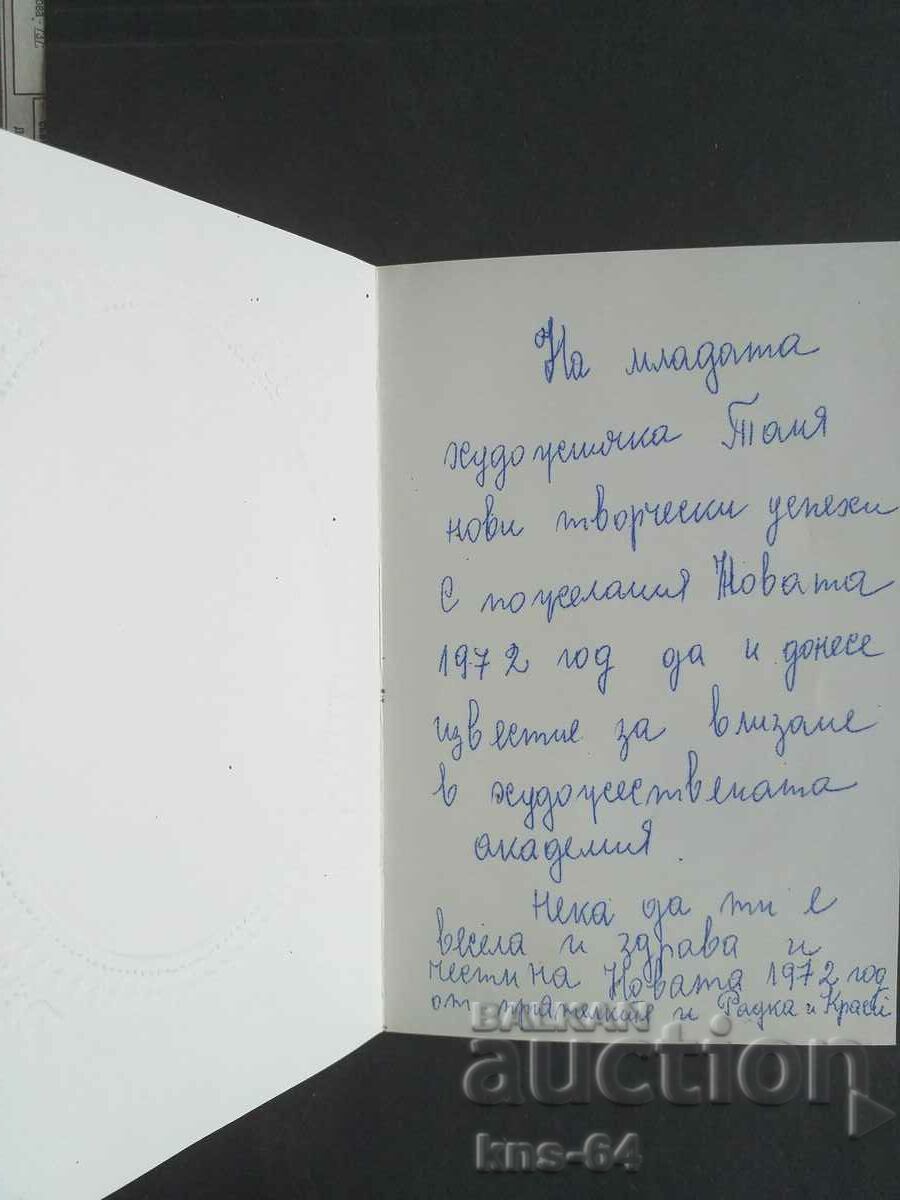 На младата
художничка Таня
нови творчески успехи
С пожелания Новата
1972 год да и донесе
известие за влизане
в художествената
академия.
Нека да ти е
весела и здрава и
честита Новата 1972 год
от и Радка и
BALKAN
auction
kns-64